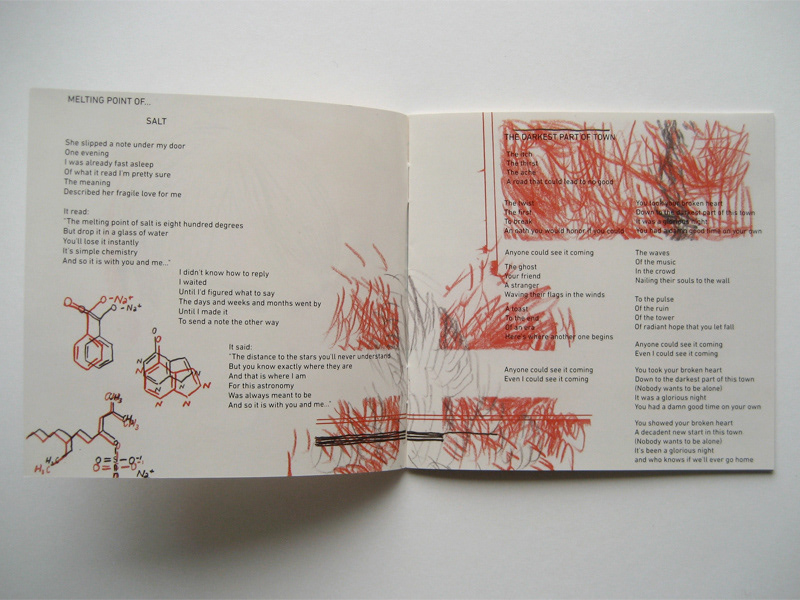 MELTING POINT OF...
SALT
She slipped a note under my door
One evening
I was already fast asleep
Of what it read I'm pretty sure
The meaning
Described her fragile love for me
It read:
"The melting point of salt is eight hundred degrees
But drop it in a glass of water
You'll lose it instantly
It's simple chemistry
And so it is with you and me..."
I didn't know how to reply
I waited
Until I'd figured what to say
The days and weeks and months went by
Until I made it
To send a note the other way
It said:
"The distance to the stars you'll never understand
But you know exactly where they are
And that is where I am
For this astronomy
Was always meant to be
And so it is with you and me..."
O
O-Na+
O-Na+
O
N
N
N
N
N
CH3
CH3
H3C
H3C
O
O=S=O
O-
Na+
THE DARKEST PART OF TOWN
The itch
The thirst
The ache
A road that could lead to no good
The twist
The first
To break
An oath you would honor if you could
Anyone could see it coming
The ghost
Your friend
A stranger
Waving their flags in the winds
A toast
To the end
Of an era
Here's where another one begins
Anyone could see it coming
Even I could see it coming
You took your broken heart
Down to the darkest part of this town
It was a glorious night
You had a damn good time on your own
The waves
Of the music
In the crowd
Nailing their souls to the wall
To the pulse
Of the ruin
Of the tower
Of radiant hope that you let fall
Anyone could see it coming
Even I could see it coming
You took your broken heart
Down to the darkest part of this town
(Nobody wants to be alone)
It was a glorious night
You had a damn good time on your own
You showed your broken heart
A decadent new start in this town
(Nobody wants to be alone)
It's been a glorious night
and who knows if we'll ever go home